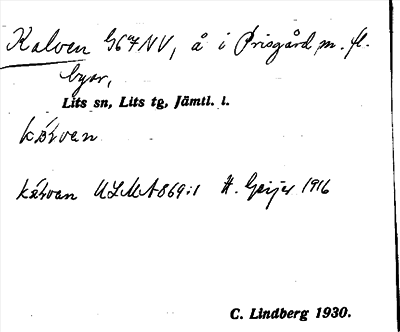 Kalven 567NV, å i Prisgård m. fl.
byar,
Lits sn, Lits tg, Jämtl. l.
ULMA 869:1 H. Geijer 1916
C. Lindberg 1930.